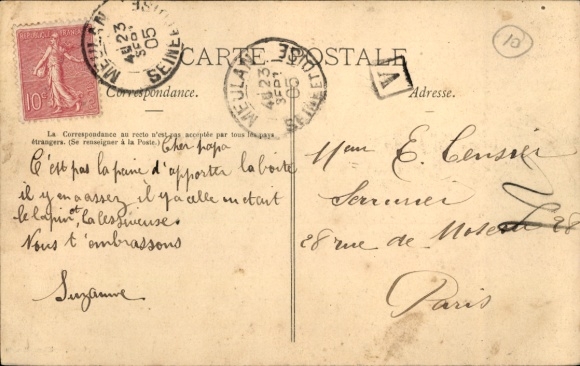 CARTE POSTALE
Correspondance.
Adresse.
La Correspondance au recto n'est pas acceptée par tous les pays
étrangers. (Se renseigner à la Poste.)
Cher papa
C'est pas la peine d'apporter la boite
il y en a assez il y a celle ou était
le lapin et la lessiveuse.
Nous t'embrassons
Suzanne
E. Censier
Serrurier
28 rue de
Paris
RÉPUBLIQUE FRANÇAISE
10c
MEULAN
4E 23
SEPT
05
SEINE ET OISE
MEULAN
4E 23
SEPT
05
SEINE ET OISE
A
10